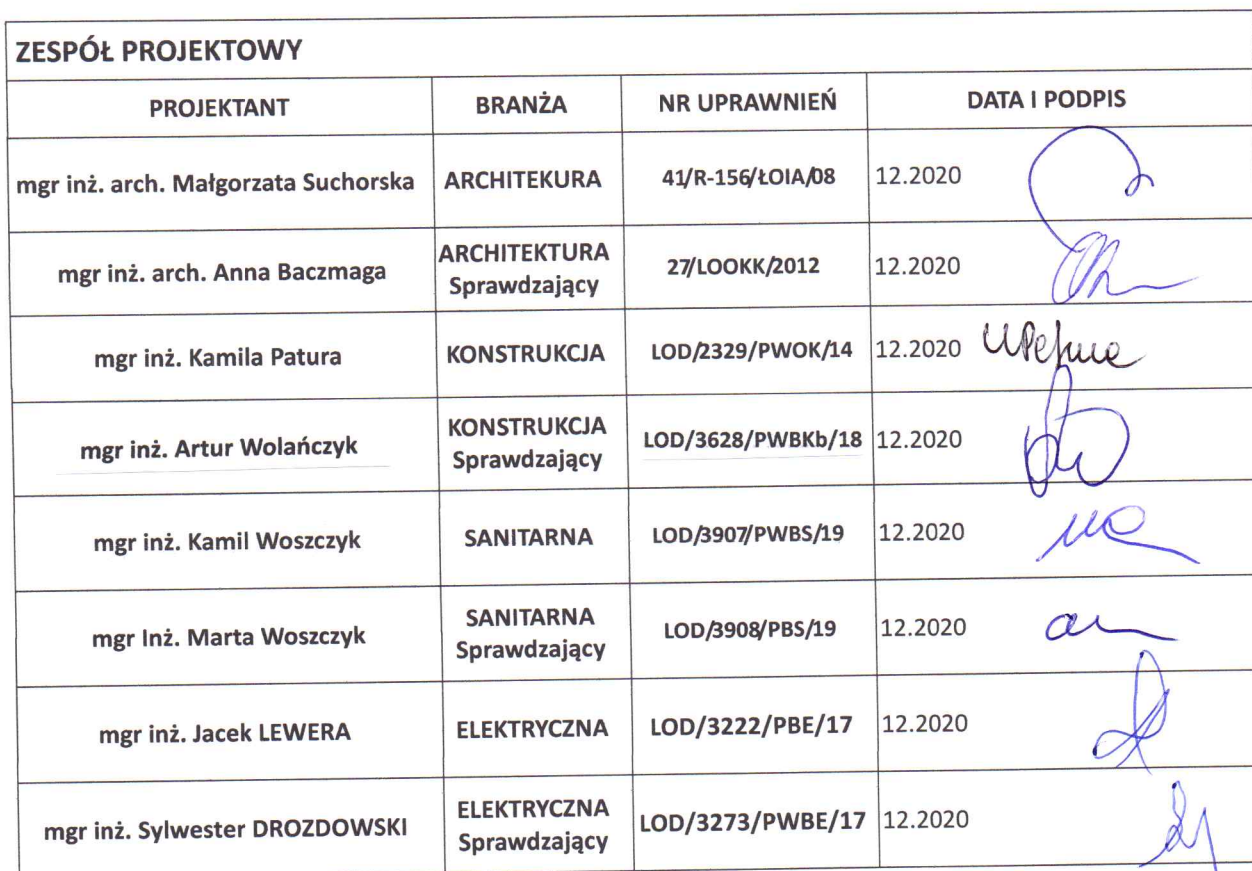 ZESPÓŁ PROJEKTOWY
PROJEKTANT BRANŻA NR UPRAWNIEŃ DATA I PODPIS
mgr inż. arch. Małgorzata Suchorska ARCHITEKURA 41/R-156/ŁOIA/08 12.2020
mgr inż. arch. Anna Baczmaga ARCHITEKTURA 27/LOOKK/2012 12.2020
Sprawdzający
mgr inż. Kamila Patura KONSTRUKCJA LOD/2329/PWOK/14 12.2020
mgr inż. Artur Wolańczyk KONSTRUKCJA LOD/3628/PWBKb/18 12.2020
Sprawdzający
mgr inż. Kamil Woszczyk SANITARNA LOD/3907/PWBS/19 12.2020
mgr Inż. Marta Woszczyk SANITARNA LOD/3908/PBS/19 12.2020
Sprawdzający
mgr inż. Jacek LEWERA ELEKTRYCZNA LOD/3222/PBE/17 12.2020
mgr inż. Sylwester DROZDOWSKI ELEKTRYCZNA LOD/3273/PWBE/17 12.2020
Sprawdzający